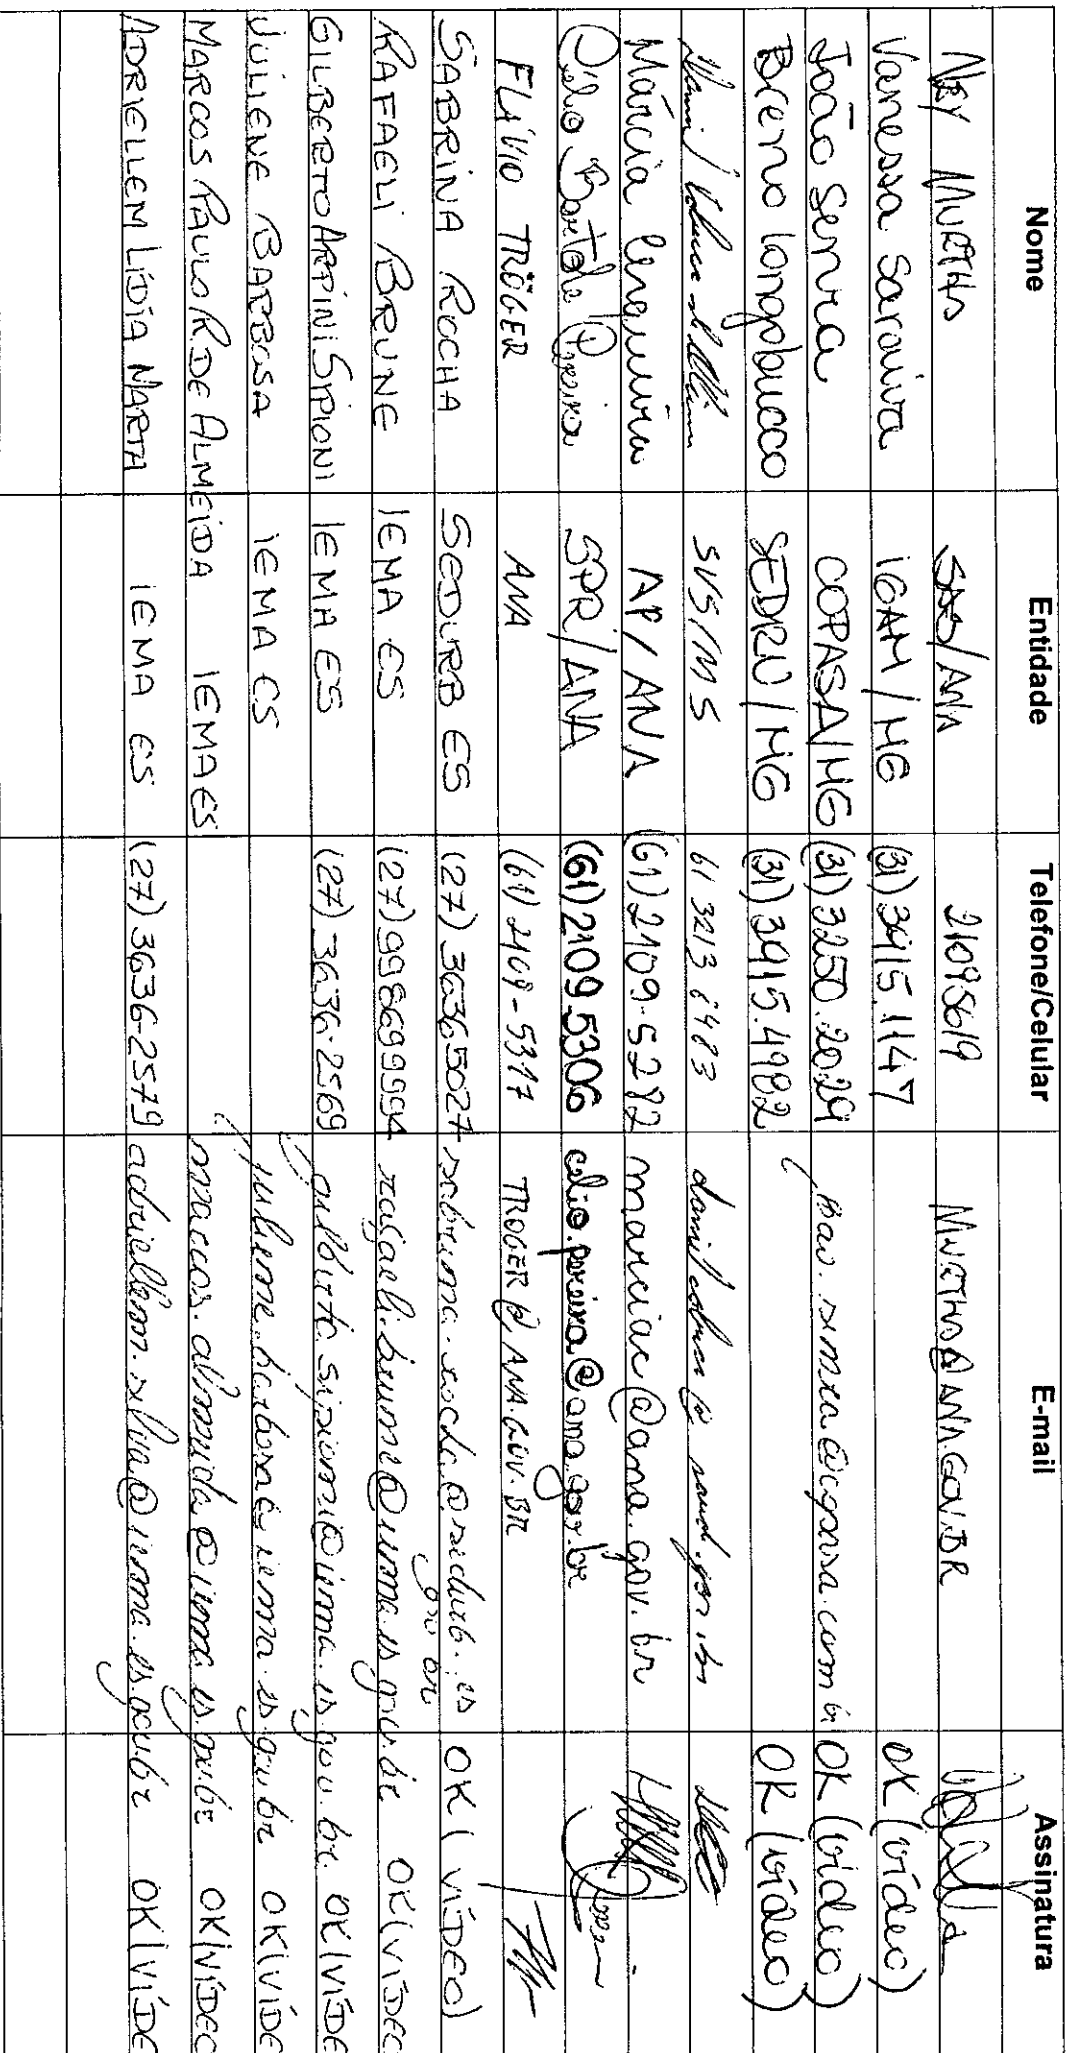 Nome Entidade Telefone/Celular E-mail Assinatura
NEY MURTHA /ANA 21095619 MURTHA@ANA.GOV.BR
Vanessa Saraiva IGAM/MG (31) 3915.1147 OK (vídeo)
João Senra COPASA/MG (31) 3250.2029 joao.senra@copasa.com.br OK (vídeo)
Breno Longobucco SEDRU/MG (31) 3915.4982 OK (vídeo)
SVS/MS 61 3213 8483
Márcia Cerqueira AP/ANA (61) 2109-5282 marciac@ana.gov.br
Célio Bartole Pereira SPR/ANA (61) 2109 5306 celio.pereira@ana.gov.br
FLÁVIO TRÖGER ANA (61) 2109-5317 TROGER@ANA.GOV.BR
SABRINA ROCHA SEDURB ES (27) 36365027 sabrina.rocha@sedurb.es gov br OK (VÍDEO)
RAFAELI BRUNE IEMA ES (27) 998699994 rafaeli.brune@iema.es.gov.br OK (VÍDEO
GILBERTO ARPINI SIPIONI IEMA ES (27) 3636-2569 gilberto.sipioni@iema.es.gov.br. OK (VÍDE
JULIENE BARBOSA IEMA ES juliene.barbosa@iema.es.gov.br OK (VÍDE
MARCOS PAULO R DE ALMEIDA IEMA ES marcos.almeida@iema.es.gov.br OK (VÍDEO
ADRIELLEM LÍDIA MARTA IEMA ES (27) 3636-2579 adriellem.silva@iema.es.gov.br OK (VÍDE